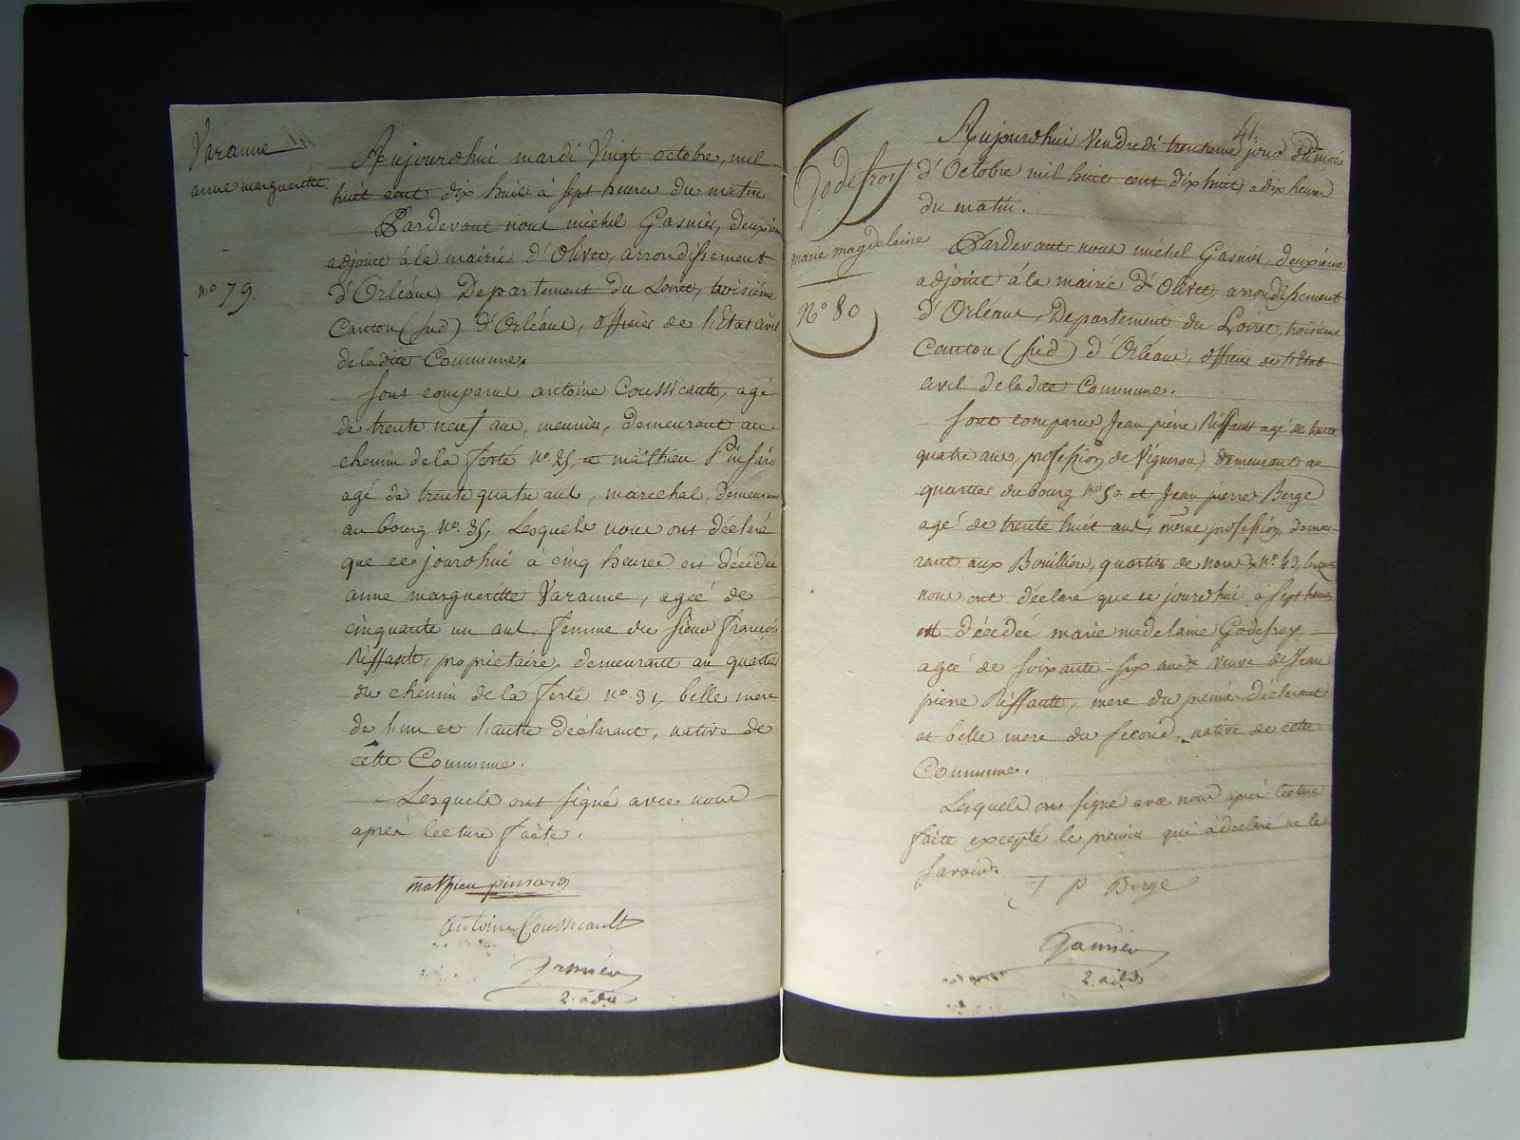 Varanne
anne margueritte
n° 79.
Aujourdhui mardi Vingt octobre, mil
huit cent dix huit à sept heures du matin
Pardevant nous michel Gasnier, deuxieme
adjoint à la mairie d'Olivet, arrondissement
d'Orléans Departement du Loiret, troisième
Canton (sud) d'Orléans, officier de l'Etat Civil
de ladite Commune.
Sont comparus antoine Coussicault, agé
de trente neuf ans, meunier, demeurant au
chemin de la ferté n° 25, et mathieu Pinsard
agé de trente quatre ans, marechal, demeurant
au bourg n° 35, Lesquels nous ont déclaré
que ce jourdhui à cinq heures est décédée
anne margueritte Varanne, agée de
cinquante un ans, femme du sieur françois
Riffault, propriétaire, demeurant au quartier
du chemin de la ferté n° 31, belle mere
de l'un et l'autre déclarant, native de
cette Commune.
Lesquels ont signé avec nous
après lecture faite.
mathieu pinsard
antoine Coussicault
Gasnier
2. adj
41.
Godefroy
marie magdelaine
N° 80
Aujourdhui Vendredi trentieme jour du mois
d'Octobre mil huit cent dix huit, a dix heures
du matin.
Pardevant nous michel Gasnier, deuxieme
adjoint à la mairie d'Olivet, arrondissement
d'Orléans, Departement du Loiret, troisieme
Canton (sud) d'Orléans, officier de l'Etat
civil de ladite Commune.
Sont comparus, Jean pierre Riffault agé de trente
quatre ans, profession de Vigneron, demeurant au
quartier du bourg n° 50 et Jean pierre Berge
agé de trente huit ans, même profession, demeu-
rant aux Bouilliers, quartier de nous n° 43, lesquels
nous ont déclaré que ce jourdhui à sept heures
est décédée marie madelaine Godefroy,
agée de soixante-six ans veuve de Jean
pierre Riffault, mere du premier déclarant
et belle mere du second, native de cette
Commune.
Lesquels ont signé avec nous après lecture
faite excepté le premier qui a déclaré ne le
savoir.
J P Berge
Gasnier
2. adj